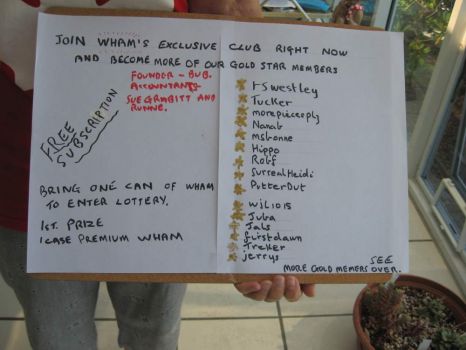 JOIN WHAM'S EXCLUSIVE CLUB RIGHT NOW
AND BECOME MORE OF OUR GOLD STAR MEMBERS
FOUNDER - BUB.
ACCOUNTANTS
SUE GRABITT AND
RUNNE.
FREE
SUBSCRIPTION
BRING ONE CAN OF WHAM
TO ENTER LOTTERY.
1ST. PRIZE
1 CASE PREMIUM WHAM
rswestley
Tucker
morepiecesply
Nanab
msbonne
Hippo
Robf
SurrealHeidi
PutterDut
wil1015
Juba
Jals
firstdawn
Treker
jerrys
SEE
MORE GOLD MEMERS OVER.